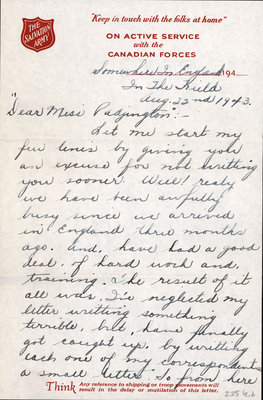 "Keep in touch with the folks at home"
THE
SALVATION
ARMY
ON ACTIVE SERVICE
with the
CANADIAN FORCES
Somewhere In England 194
In The Field
Aug. 22nd 1943.
"Dear Miss Padjington":-
Let me start my
few lines by giving you
an excuse for not writting
you sooner. Well! realy
we have been awfully
busy since we arrived
in England three months
ago. and, have had a good
deal, of hard work and,
training. The result of it
all was, I've neglected my
letter writting something
terrible, but, have finally
got caught up, by writting
each one of my correspondents
a small letter. So from here
Think Any reference to shipping or troop movements will
result in the delay or mutilation of this letter.